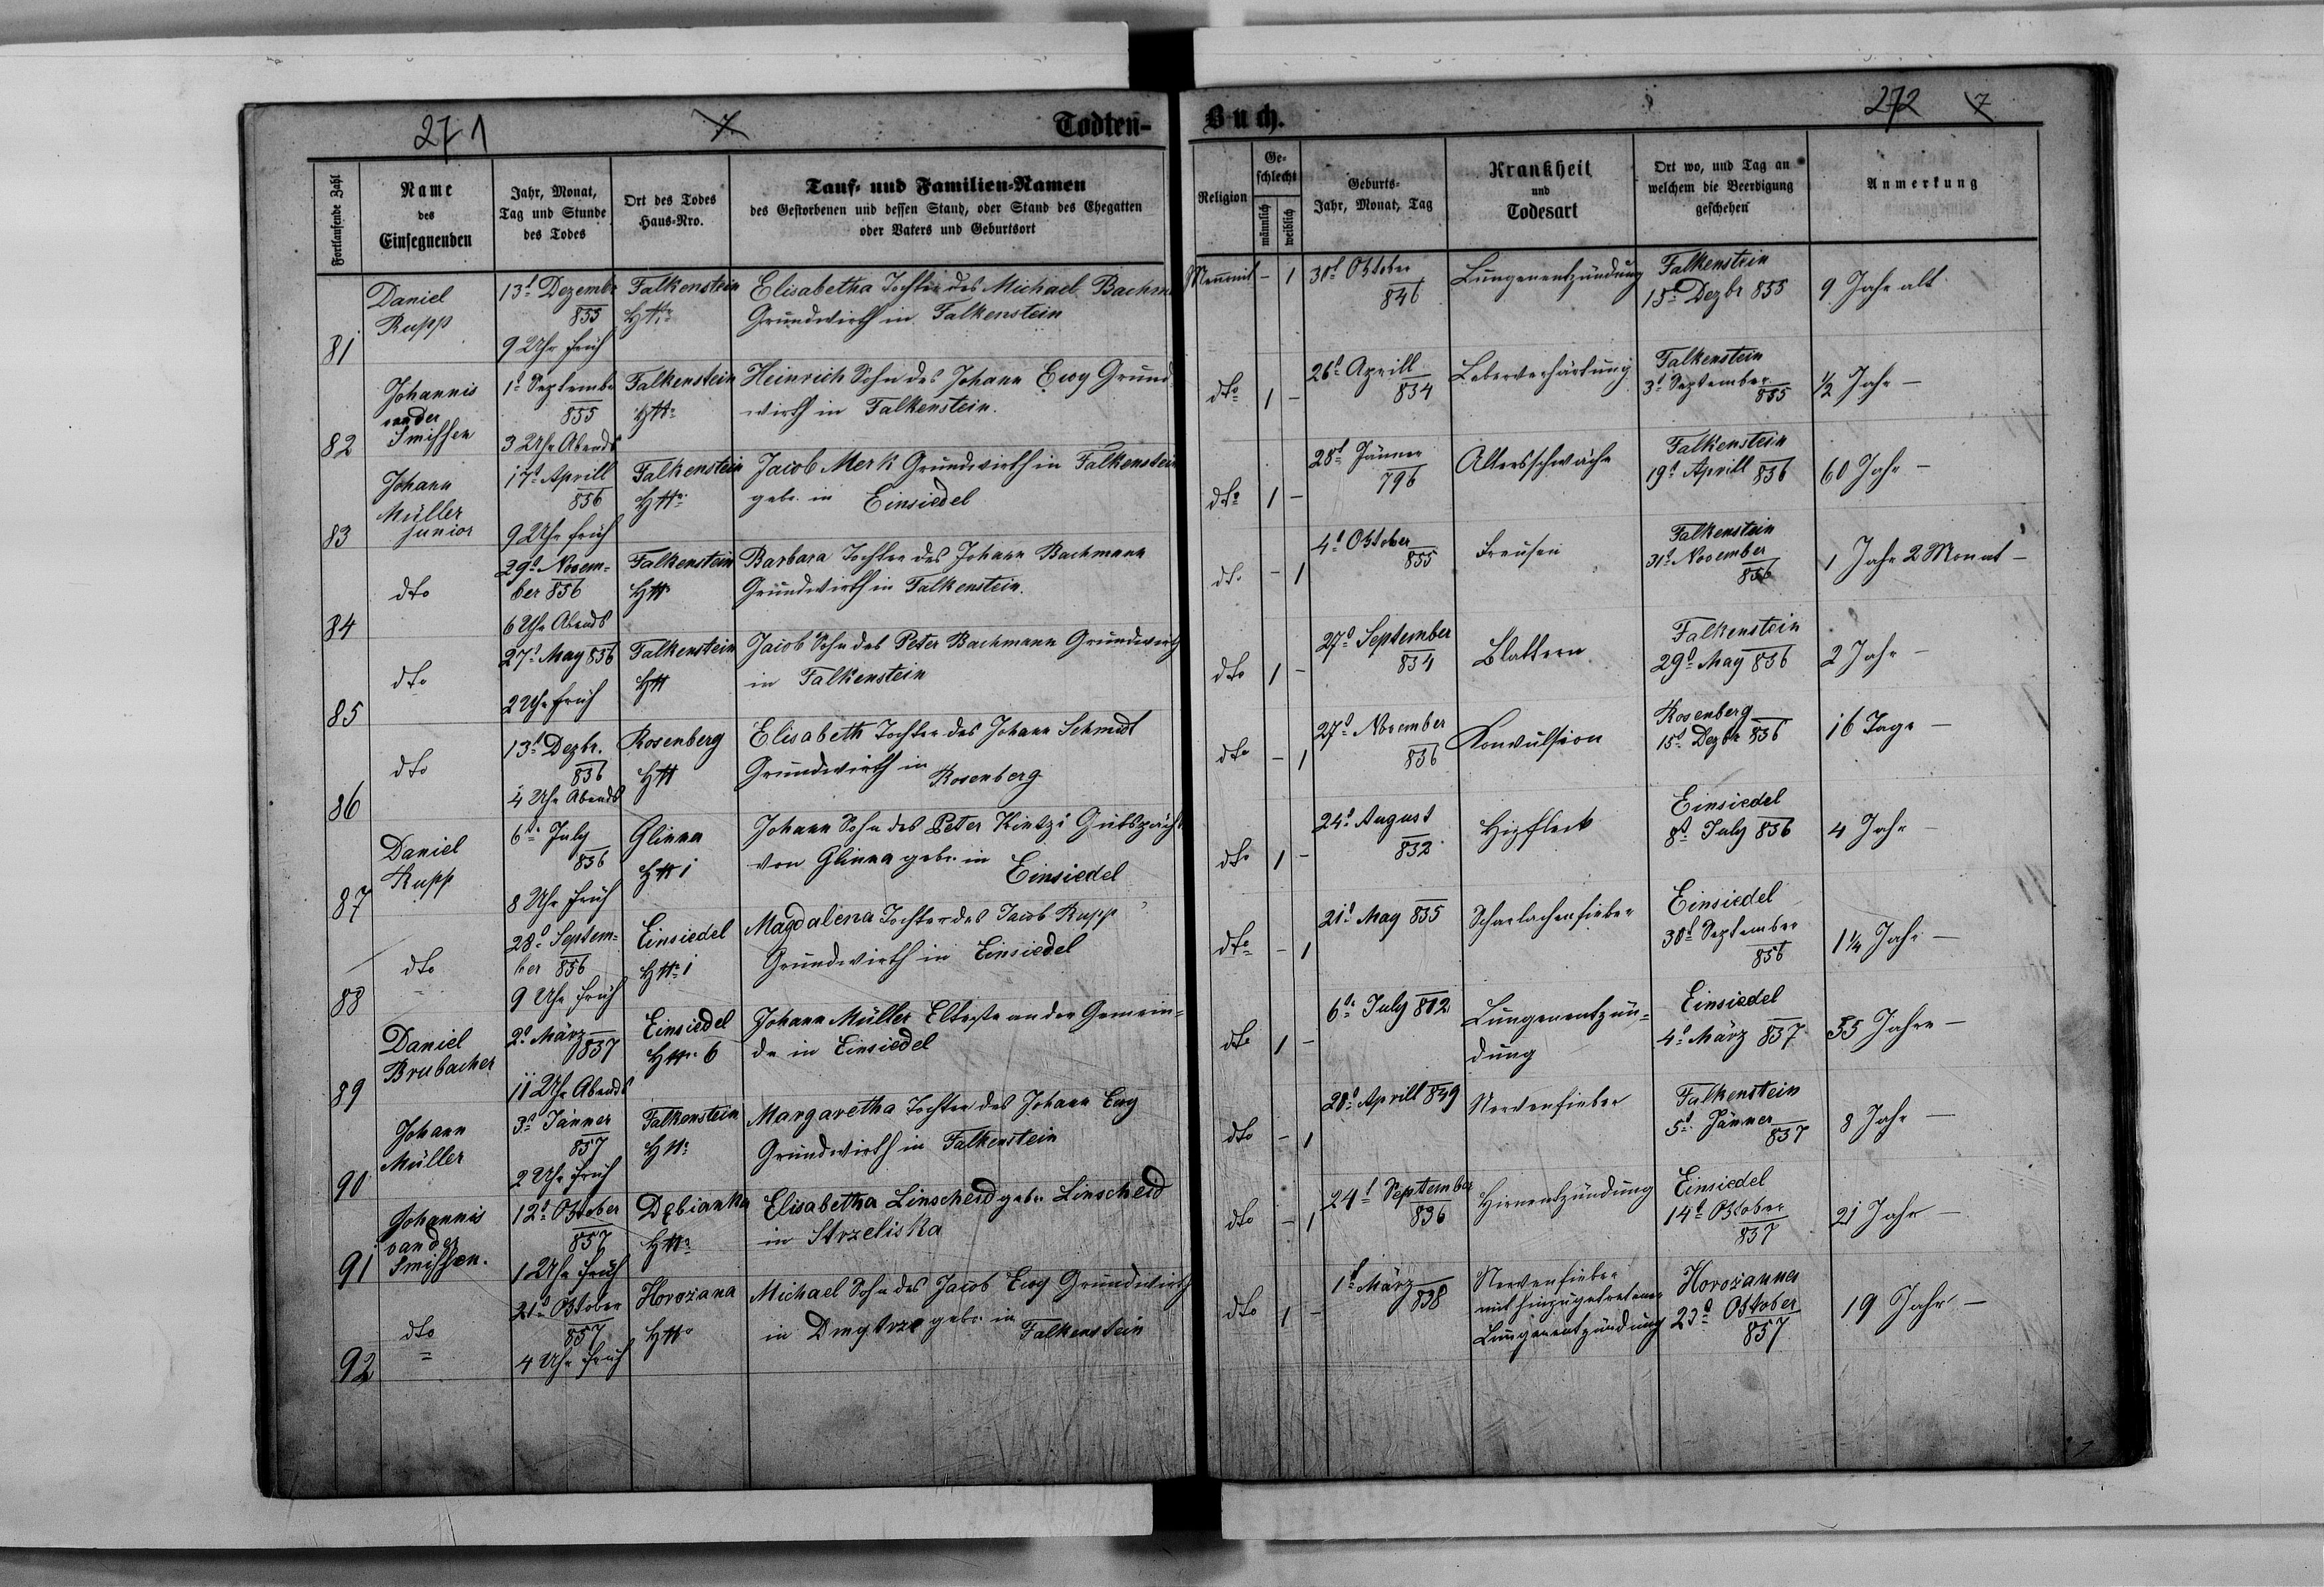 271
7
Todten-
Fortlaufende Zahl
Name
des
Einsegnenden
Jahr, Monat,
Tag und Stunde
des Todes
Ort des Todes
Haus-Nro.
Tauf- und Familien-Namen
des Gestorbenen und dessen Stand, oder Stand des Ehegatten
oder Vaters und Geburtsort
81
Daniel
Rupp
13t Dezembr
855
9 Uhr früh
Falkenstein
Elisabetha Tochter des Michael Bachm
Grundwirth in Falkenstein
82
Johannis
vander
Smissen
1t Septembr
855
3 Uhr Abends
Falkenstein
Heinrich Sohn des Johann Ewy Grund
wirth in Falkenstein.
83
Johann
Müller
junior
17t Aprill
856
9 Uhr früh
Falkenstein
Jacob Merk Grundwirth in Falkenstein
geb. in Einsiedel
84
dto
29t Novem-
ber 856
6 Uhr Abends
Falkenstein
Barbara Tochter des Johann Bachmann
Grundwirth in Falkenstein.
85
dto
27t May 856
2 Uhr früh
Falkenstein
Jacob Sohn des Peter Bachmann Grundwirth
in Falkenstein
86
dto
13t Dezbr.
856
4 Uhr Abends
Rosenberg
Elisabeth Tochter des Johann Schmidt
Grundwirth in
Rosenberg
87
Daniel
Rupp
6t July
856
8 Uhr früh
Glinna
1
Johann Sohn des Peter Kintzi Gutspächt
von Glinna geb. in Einsiedel
88
dto
28t Septem-
ber 856
9 Uhr früh
Einsiedel
1
Magdalena Tochter des Jacob Rupp
Grundwirth in Einsiedel
89
Daniel
Brubacher
2t März
857
11 Uhr Abends
Einsiedel
6
Johann Müller Elteste an der Gemein-
de in Einsiedel
90
Johann
Müller
3t Jänner
857
2 Uhr früh
Falkenstein
Margaretha Tochter des Johann Ewy
Grundwirth in Falkenstein
91
Johannis
vander
Smissen.
12t Oktober
857
1 Uhr früh
Dębianka
Elisabetha Linscheid geb. Linscheid
in Strzeliska
92
dto
21t Oktober
857
4 Uhr früh
Horożana
Michael Sohn des Jacob Ewy Grundwirth
in geb. in Falkenstein
Buch.
272
7
Religion
Ge-
schlecht
männlich
weiblich
Geburts-
Jahr, Monat, Tag
Krankheit
und
Todesart
Ort wo, und Tag an
welchem die Beerdigung
geschehen
Anmerkung
Mennonit
- 1
31t Oktober
846
Lungenentzündung
Falkenstein
15t Dezbr 855
9 Jahr alt
dto
1 -
26t Aprill
854
Leberverhärtung
Falkenstein
3t September
855
1/2 Jahr -
dto
1 -
28t Jänner
796
Altersschwäche
Falkenstein
19t Aprill 856
60 Jahr -
dto
- 1
4t Oktober
855
Falkenstein
31t November
856
1 Jahr 2 Monat -
dto
1 -
27t September
854
Blattern
Falkenstein
29t May 856
2 Jahr -
dto
- 1
27t November
856
Konvulsion
Rosenberg
15t Dezbr 856
16 Tage -
dto
1 -
24t August
852
Einsiedel
8t July 856
4 Jahr -
dto
- 1
21t May 855
Scharlachenfieber
Einsiedel
30t September
856
1 1/4 Jahr -
dto
1 -
6t July 802
Lungenentzün-
dung
Einsiedel
4t März 857
55 Jahre -
dto
- 1
28t Aprill 849
Nervenfieber
Falkenstein
5t Jänner
857
8 Jahr -
dto
- 1
24t September
836
Hirnentzündung
Einsiedel
14t Oktober
857
21 Jahr -
dto
1 -
1t März
838
Nervenfieber
mit hinzugetretener
Lungenentzündung
Horożanna
23t Oktober
857
19 Jahr -